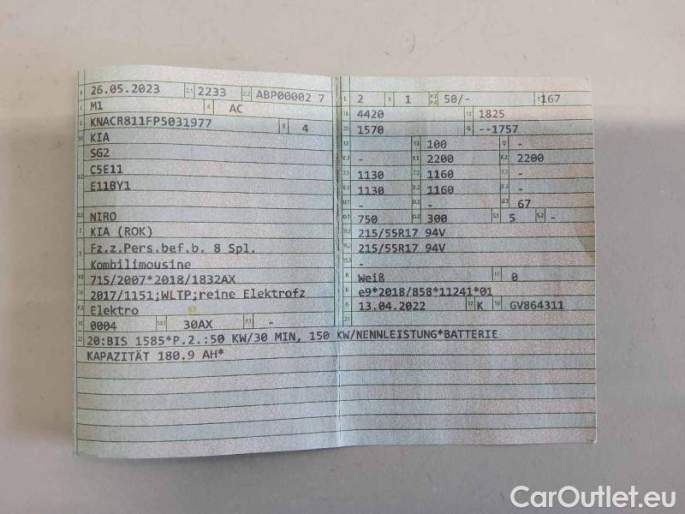 26.05.2023 2233 ABP00002 7
M1 AC
KNACR811FP5031977 4
KIA
SG2
C5E11
E11BY1
NIRO
KIA (ROK)
Fz.z.Pers.bef.b. 8 Spl.
Kombilimousine
715/2007*2018/1832AX
2017/1151;WLTP;reine Elektrofz
Elektro
0004 30AX -
2 1 50/- 167
4420 1825
1570 --1757
100 -
- 2200 2200
1130 1160 -
1130 1160 -
- - 67
750 300 5 -
215/55R17 94V
215/55R17 94V
-
Weiß 0
e9*2018/858*11241*01
13.04.2022 K GV864311
20:BIS 1585*P.2.:50 KW/30 MIN, 150 KW/NENNLEISTUNG*BATTERIE
KAPAZITÄT 180.9 AH*
CarOutlet.eu